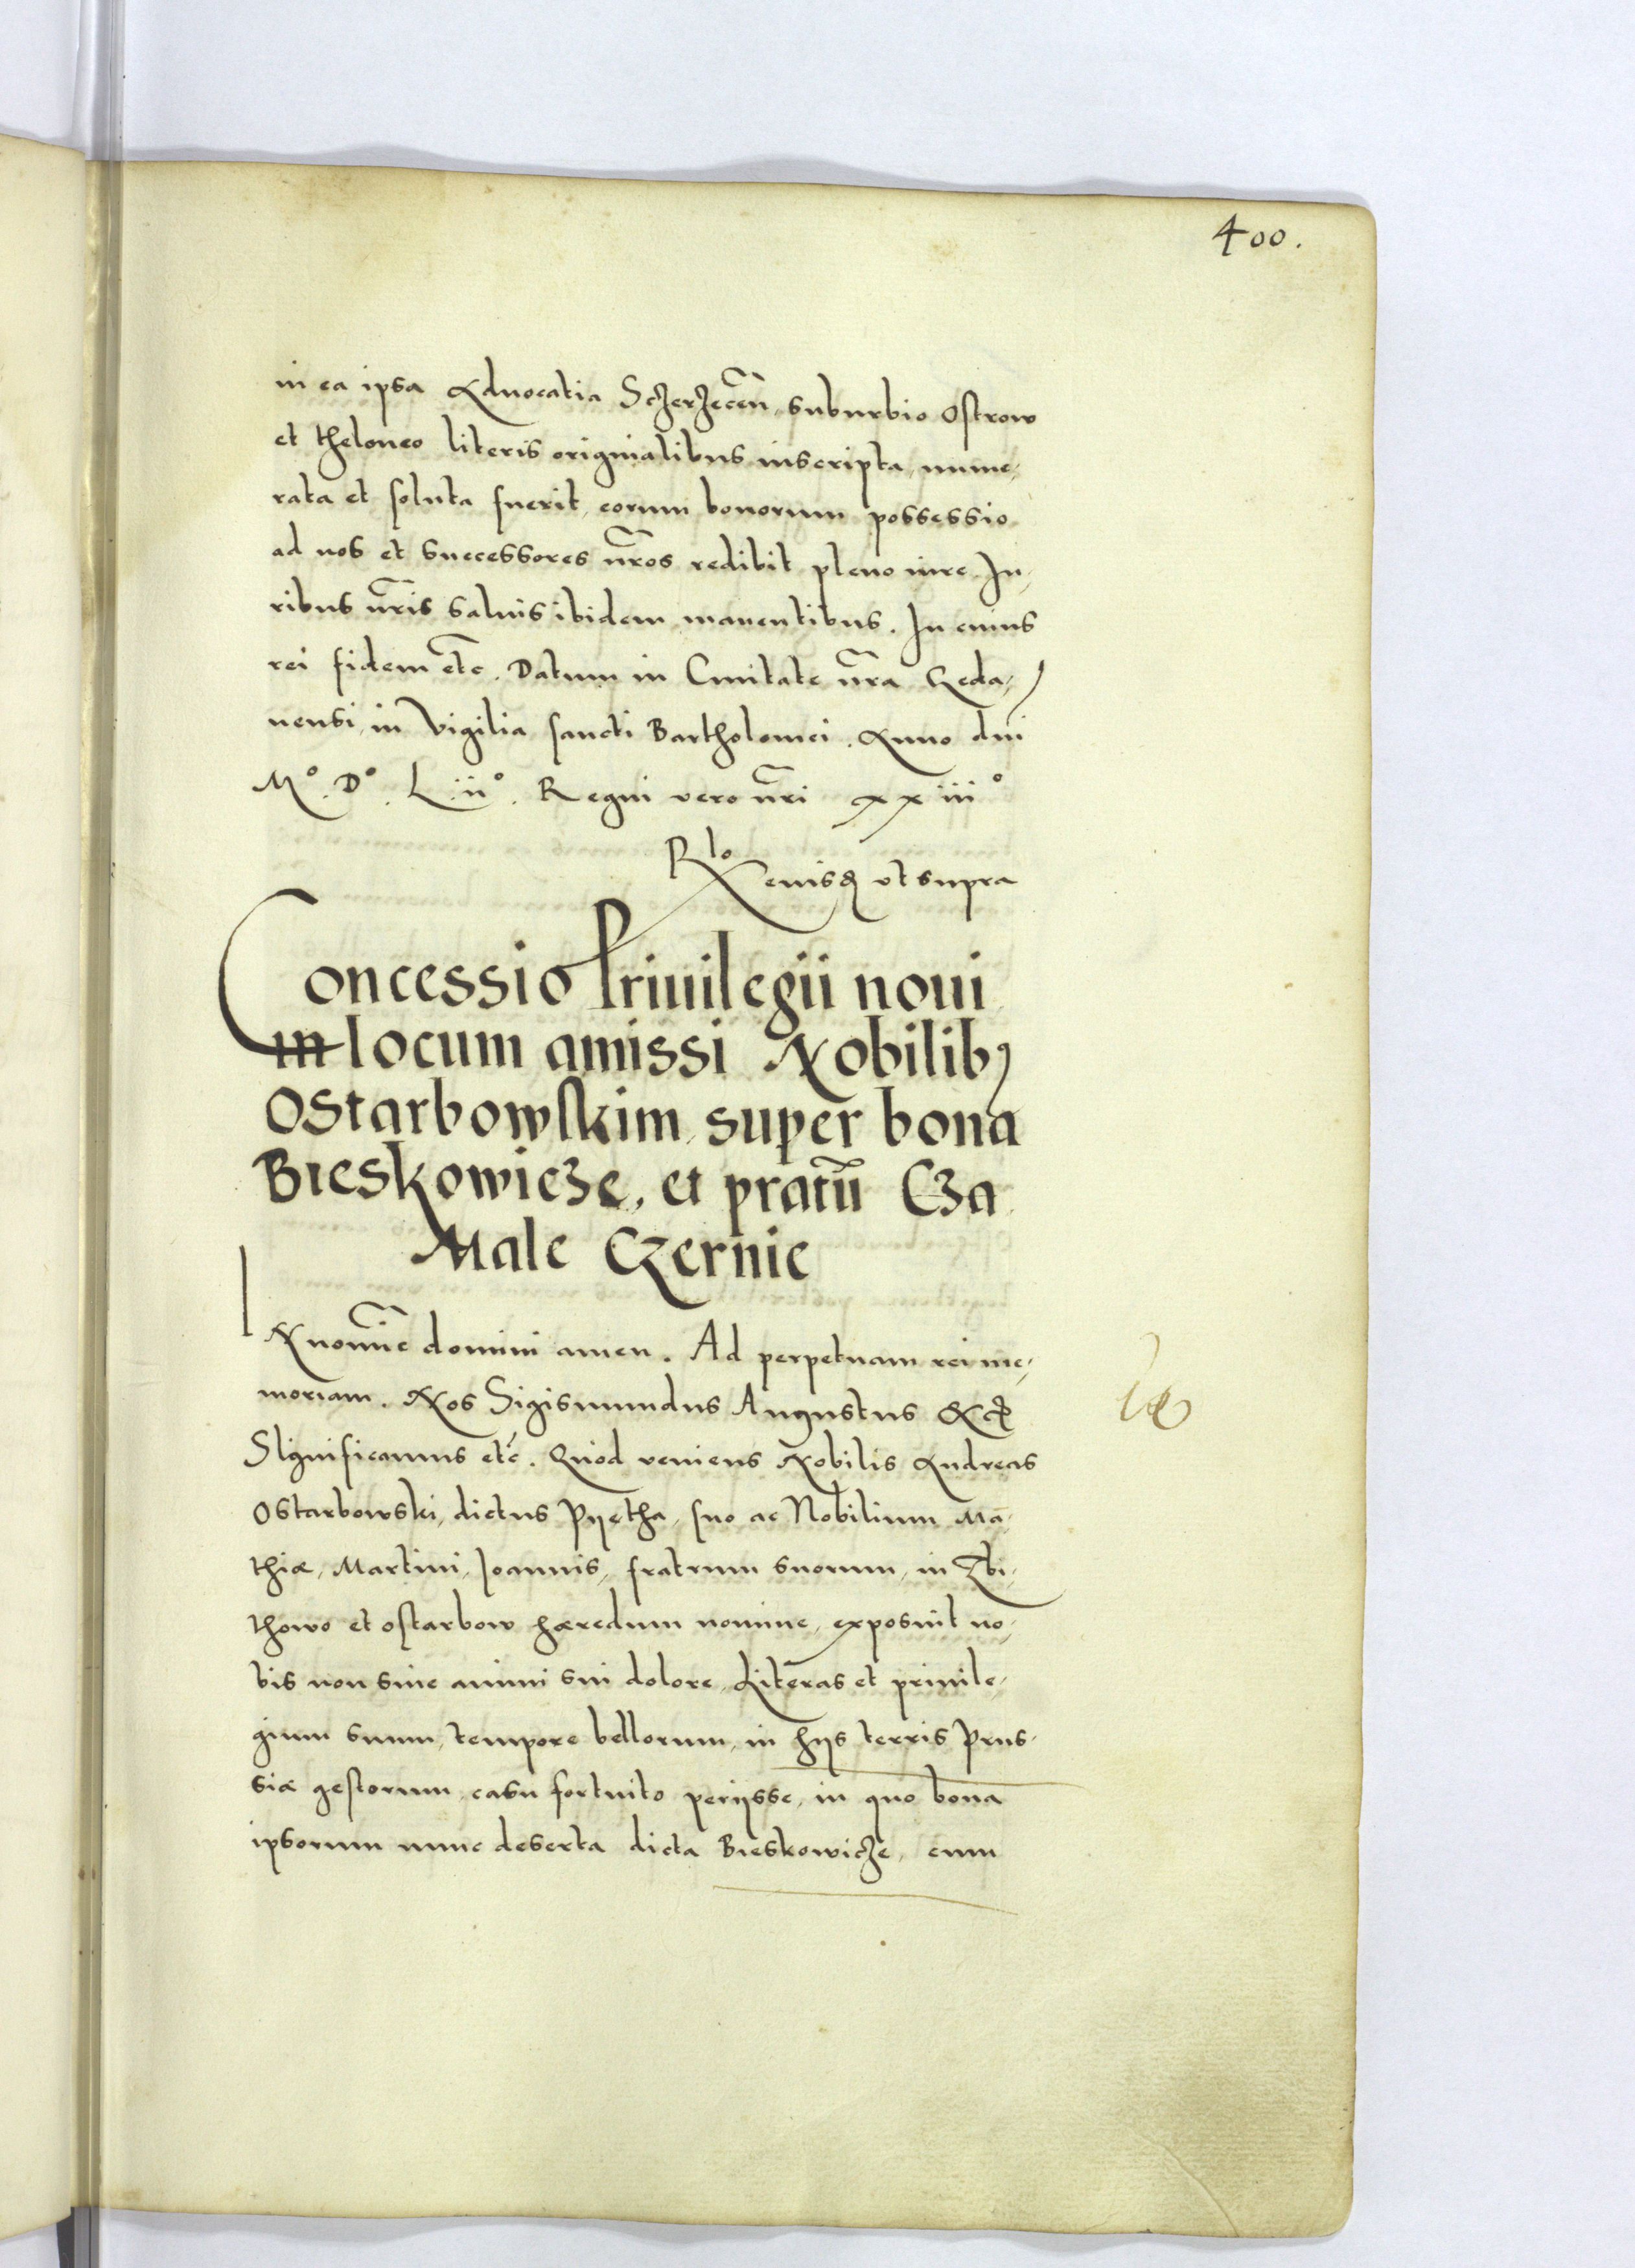 400.
in ea ipsa Aduocatia Sczerzecen̄, suburbio Ostrow
et theloneo literis originalibus inscripta, nume,
rata et soluta fuerit, eorum bonorum possessio
ad nos et successores nr̄os redibit pleno iure. Iu,
ribus nr̄is saluis ibidem manentibus. In cuius
rei fidem etc̄. Datum in Ciuitate nr̄a Geda,
nensi, in Vigilia sancti Bartholomei. Anno dni
M° D° L ii°. Regni vero nr̄i xxiii°
Rlo eiusq ut supra
Concessio Priuilegii noui
in locum amissi Nobilibꝫ
Ostarbowskim, super bona
Bieskowicze, et pratū Cza
Male Czernie
IN nomīe domini amen. Ad perpetuam rei me,
moriam. Nos Sigismundus Augustus &c
Significamus etc. Quod veniens Nobilis Andreas
Ostarbowski, dictus Pyetha, suo ac Nobilium Ma,
thiæ, Martini, Joannis, fratrum suorum, in Zbi,
thowo et ostarbow hæredum nomine, exposuit no,
bis non sine animi sui dolore, Literas et priuile,
gium suum, tempore bellorum, in hijs terris Prus,
siæ gestorum, casu fortuito perijsse, in quo bona
ipsorum nunc deserta dicta Bieskowicze, cum